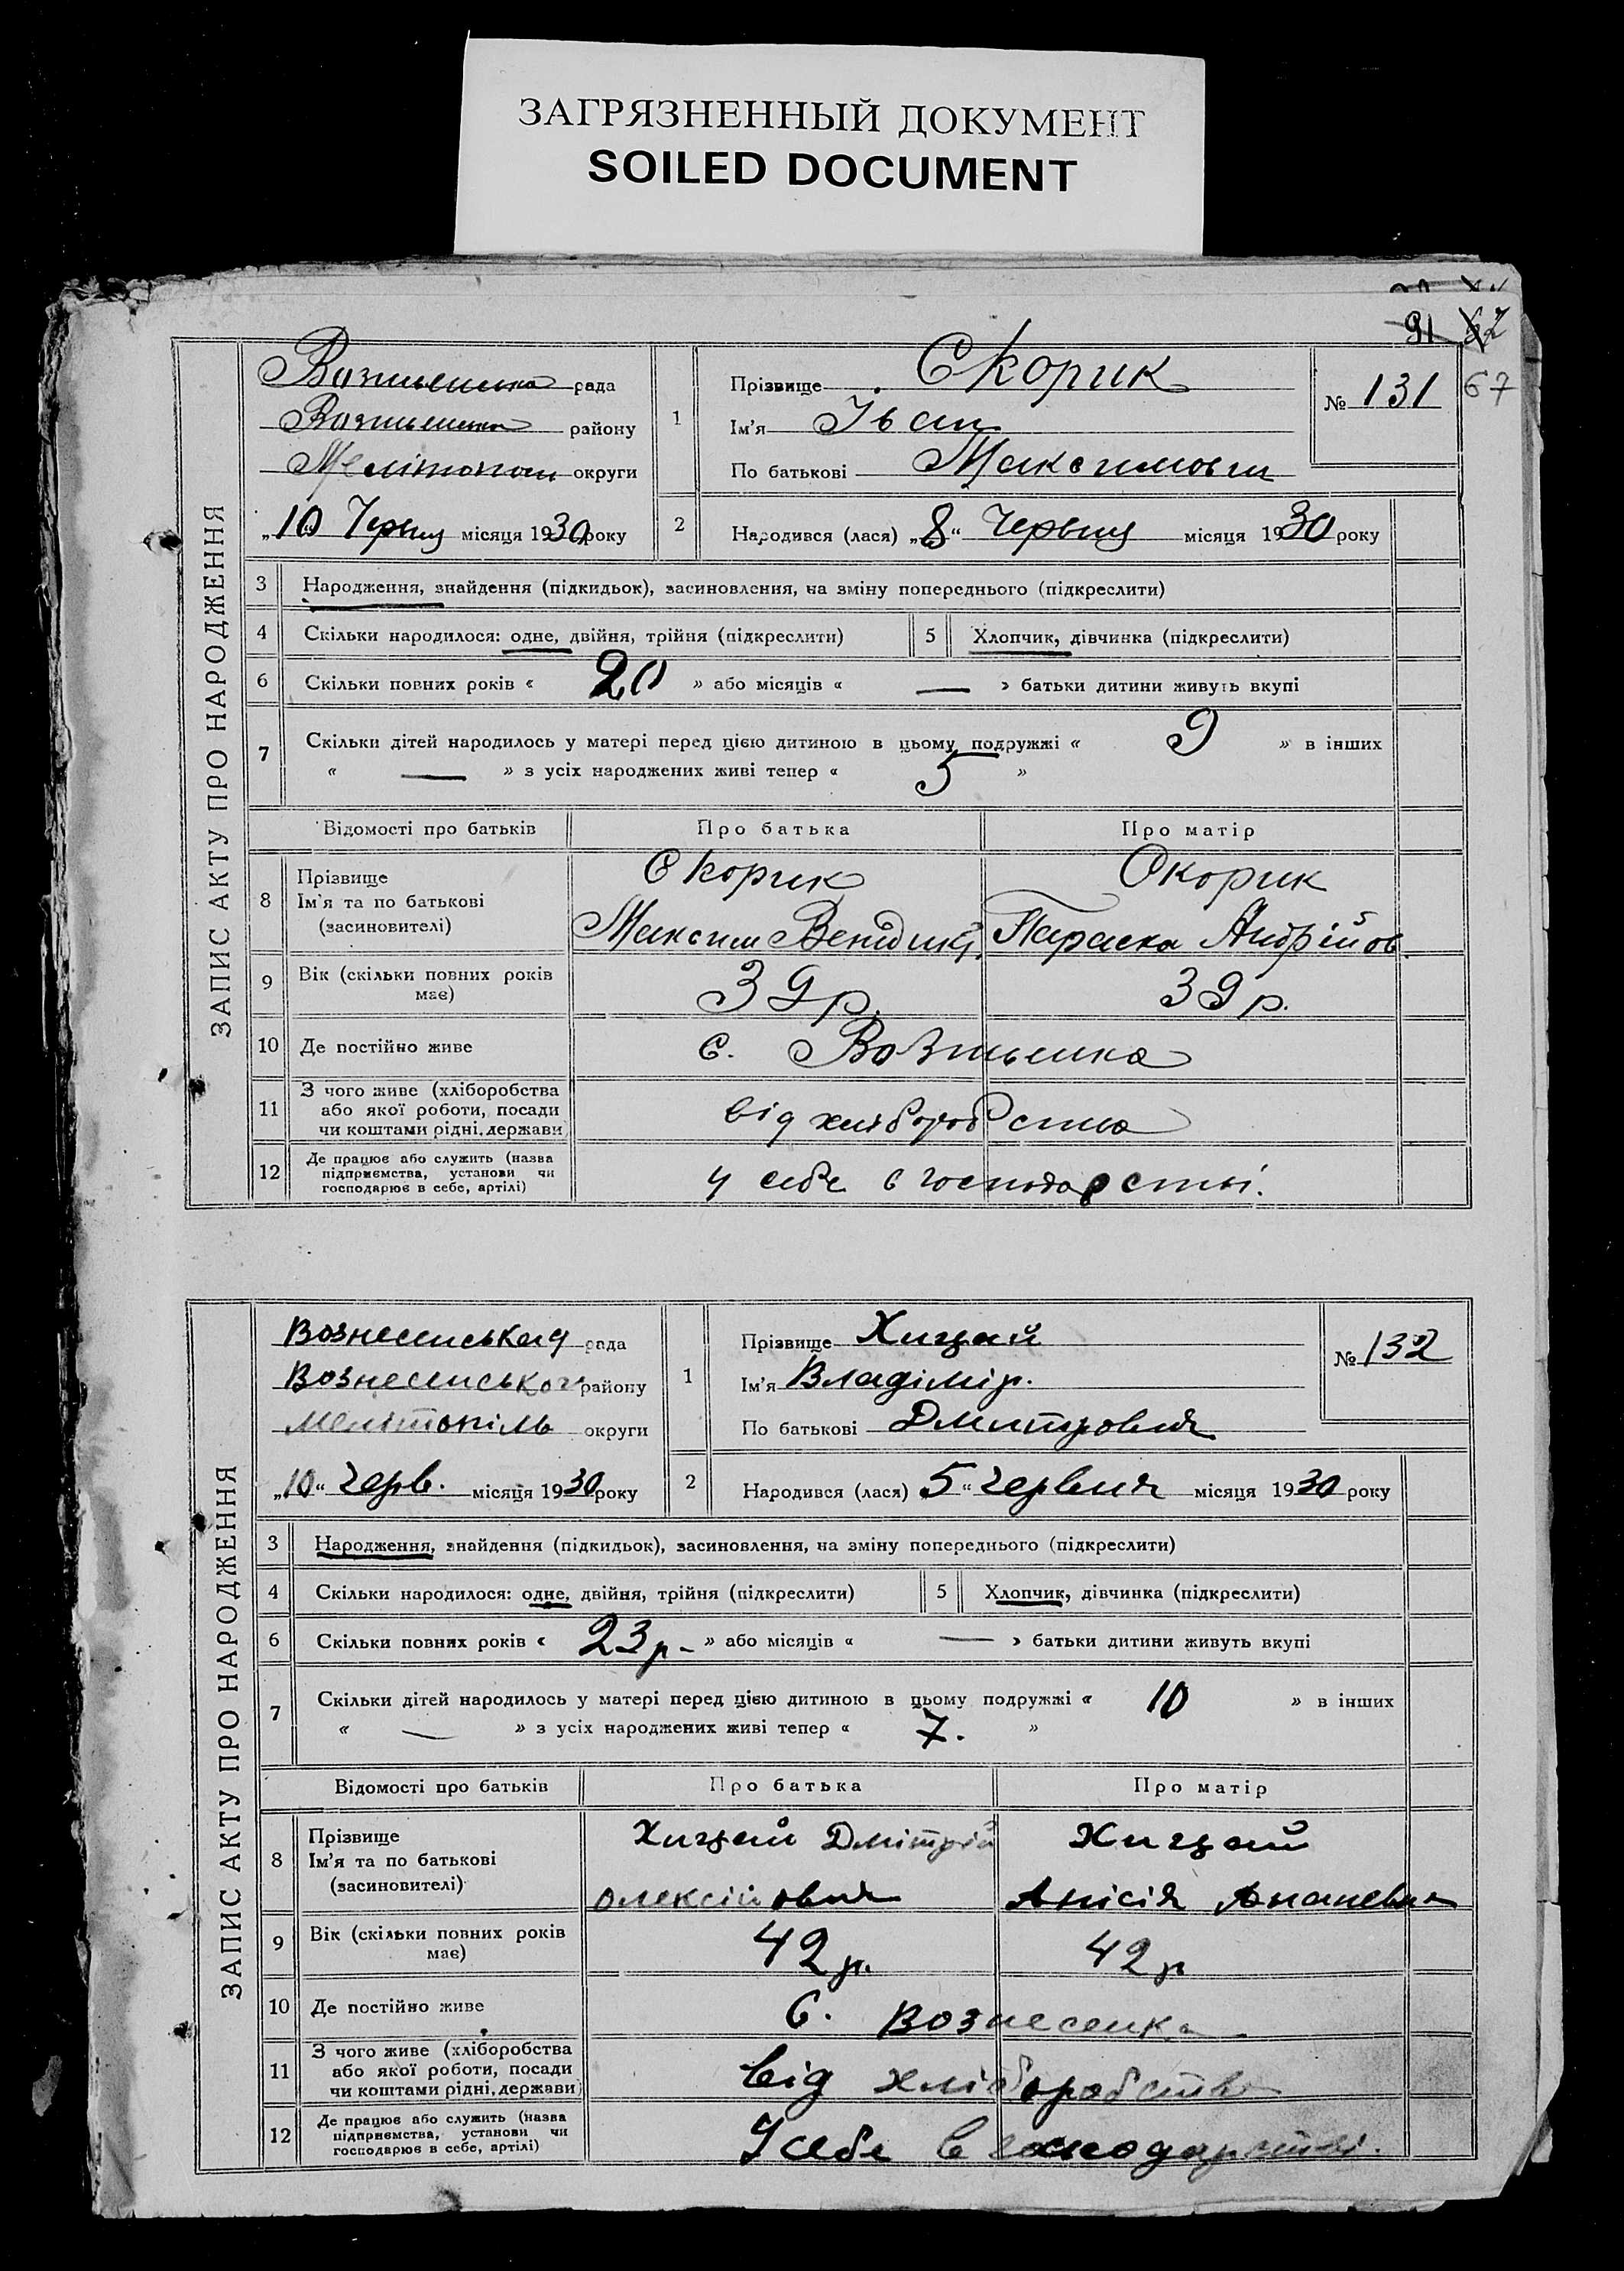 ЗАГРЯЗНЕННЫЙ ДОКУМЕНТ
SOILED DOCUMENT
91 67
67
ЗАПИС АКТУ ПРО НАРОДЖЕННЯ
рада
району
округи
„10 Червня місяця 1930 року
1
Прізвище Скорик
Ім'я Іван
По батькові Максимович
№ 131
2 Народився (лася) „8“ Червня місяця 1930 року
3 Народження, знайдення (підкидьок), засиновлення, на зміну попереднього (підкреслити)
4 Скільки народилося: одне, двійня, трійня (підкреслити) 5 Хлопчик, дівчинка (підкреслити)
6 Скільки повних років « 20 » або місяців « — » батьки дитини живуть вкупі
7 Скільки дітей народилось у матері перед цією дитиною в цьому подружжі « 9 » в інших
« — » з усіх народжених живі тепер « 5 »
Відомості про батьків Про батька Про матір
8 Прізвище
Ім'я та по батькові
(засновителі)
Скорик Скорик
Максим Параска Андрійов
9 Вік (скільки повних років
має)
39 р. 39 р.
10 Де постійно живе с.
11 З чого живе (хліборобства
або якої роботи, посади
чи коштами рідні, держави)
від хліборобства
12 Де працює або служить (назва
підприємства, установи чи
господарює в себе, артілі)
у себе в господарстві.
ЗАПИС АКТУ ПРО НАРОДЖЕННЯ
Вознесенська рада
Вознесенського району
Мелітопіль округи
„10“ черв. місяця 1930 року
1
Прізвище Хицай
Ім'я Владімір.
По батькові Дмитрович
№ 132
2 Народився (лася) 5“ червня місяця 1930 року
3 Народження, знайдення (підкидьок), засиновлення, на зміну попереднього (підкреслити)
4 Скільки народилося: одне, двійня, трійня (підкреслити) 5 Хлопчик, дівчинка (підкреслити)
6 Скільки повних років « 23 р. » або місяців « — » батьки дитини живуть вкупі
7 Скільки дітей народилось у матері перед цією дитиною в цьому подружжі « 10 » в інших
« — » з усіх народжених живі тепер « 7. »
Відомості про батьків Про батька Про матір
8 Прізвище
Ім'я та по батькові
(засиновителі)
Хицай Дмітрій Хицай
Олексійович Анісія
9 Вік (скільки повних років
має)
42 р. 42 р
10 Де постійно живе С. Вознесенка
11 З чого живе (хліборобства
або якої роботи, посади
чи коштами рідні, держави)
від хліборобства
12 Де працює або служить (назва
підприємства, установи чи
господарює в себе, артілі)
У себе в господарстві.